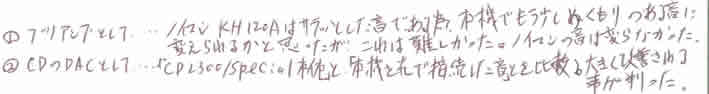 ① プリアンプとして… ノイマン KH120Aはサラッとした音である為、本機でもう少しぬくもりのある音に
変えられるかと思ったが これは難しかった。ノイマンの音は変らなかった。
② CDのDACとして…「CD5300/Special本体」と「本機と光で接続した音」とを比較 大きく改善される
事が判った。